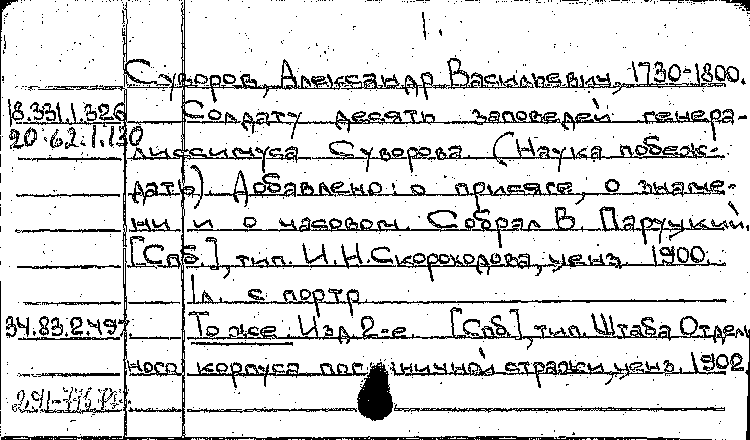 1.
Суворов, Александр Васильевич, 1730-1800.
18.331.1.326 Солдату десять заповедей генера-
20.62.1.130 лиссимуса Суворова. (Наука побеж-
дать). Добавлено: о присяге, о знаме-
ни и о часовом. Собрал В. Паруцкий.
[Спб.], тип. И.Н.Скороходова, ценз. 1900.
1л. с портр.
34.83.2.497. То же. Изд. 2-е. [Спб.], тип. Штаба Отдель
ного корпуса пограничной стражи, ценз. 1902.